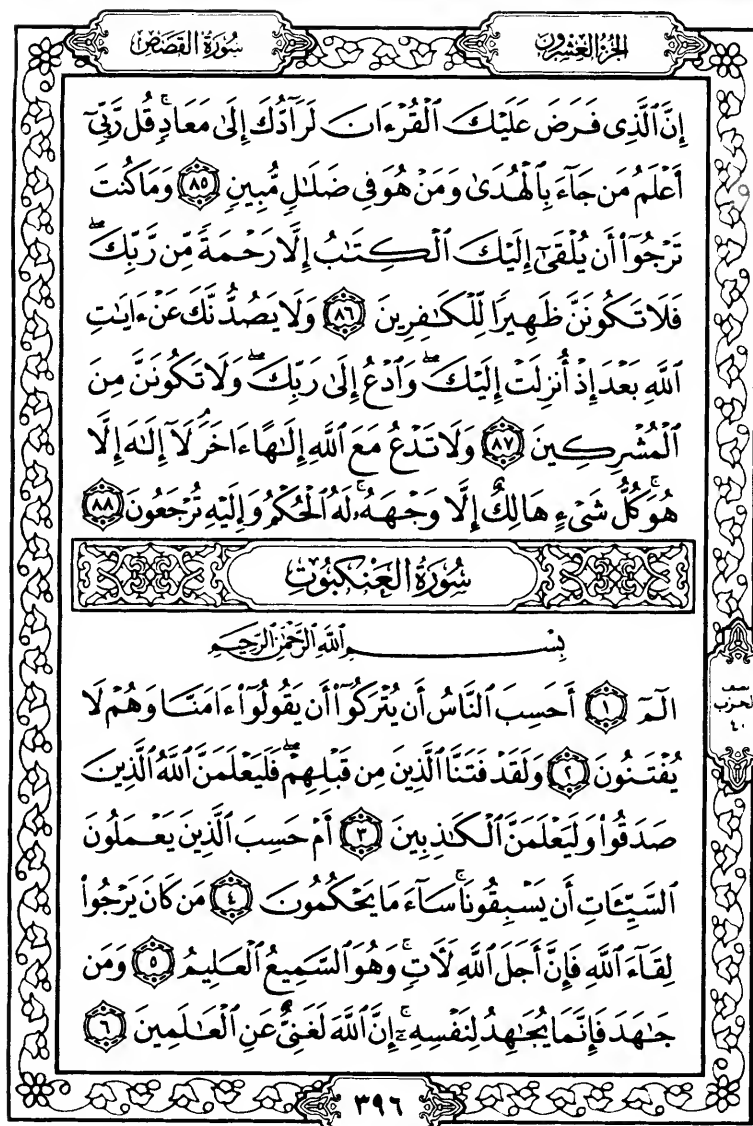 سُورَةُ القَصَصِ
الجُزْءُ العِشْرُونَ
إِنَّ ٱلَّذِى فَرَضَ عَلَيْكَ ٱلْقُرْءَانَ لَرَآدُّكَ إِلَىٰ مَعَادٍۚ قُل رَّبِّىٓ
أَعْلَمُ مَن جَآءَ بِٱلْهُدَىٰ وَمَنْ هُوَ فِى ضَلَٰلٍ مُّبِينٍ ٨٥ وَمَا كُنتَ
تَرْجُوٓا۟ أَن يُلْقَىٰٓ إِلَيْكَ ٱلْكِتَٰبُ إِلَّا رَحْمَةً مِّن رَّبِّكَۖ
فَلَا تَكُونَنَّ ظَهِيرًا لِّلْكَٰفِرِينَ ٨٦ وَلَا يَصُدُّنَّكَ عَنْ ءَايَٰتِ
ٱللَّهِ بَعْدَ إِذْ أُنزِلَتْ إِلَيْكَۖ وَٱدْعُ إِلَىٰ رَبِّكَۖ وَلَا تَكُونَنَّ مِنَ
ٱلْمُشْرِكِينَ ٨٧ وَلَا تَدْعُ مَعَ ٱللَّهِ إِلَٰهًا ءَاخَرَۘ لَآ إِلَٰهَ إِلَّا
هُوَۚ كُلُّ شَىْءٍ هَالِكٌ إِلَّا وَجْهَهُۥۚ لَهُ ٱلْحُكْمُ وَإِلَيْهِ تُرْجَعُونَ ٨٨
سُورَةُ العَنْكَبُوتِ
بِسْمِ ٱللَّهِ ٱلرَّحْمَٰنِ ٱلرَّحِيمِ
الٓمٓ ١ أَحَسِبَ ٱلنَّاسُ أَن يُتْرَكُوٓا۟ أَن يَقُولُوٓا۟ ءَامَنَّا وَهُمْ لَا
يُفْتَنُونَ ٢ وَلَقَدْ فَتَنَّا ٱلَّذِينَ مِن قَبْلِهِمْۖ فَلَيَعْلَمَنَّ ٱللَّهُ ٱلَّذِينَ
صَدَقُوا۟ وَلَيَعْلَمَنَّ ٱلْكَٰذِبِينَ ٣ أَمْ حَسِبَ ٱلَّذِينَ يَعْمَلُونَ
ٱلسَّيِّـَٔاتِ أَن يَسْبِقُونَاۚ سَآءَ مَا يَحْكُمُونَ ٤ مَن كَانَ يَرْجُوا۟
لِقَآءَ ٱللَّهِ فَإِنَّ أَجَلَ ٱللَّهِ لَءَاتٍۚ وَهُوَ ٱلسَّمِيعُ ٱلْعَلِيمُ ٥ وَمَن
جَٰهَدَ فَإِنَّمَا يُجَٰهِدُ لِنَفْسِهِۦٓۚ إِنَّ ٱللَّهَ لَغَنِىٌّ عَنِ ٱلْعَٰلَمِينَ ٦
نصف
الحزب
٤٠
٣٩٦